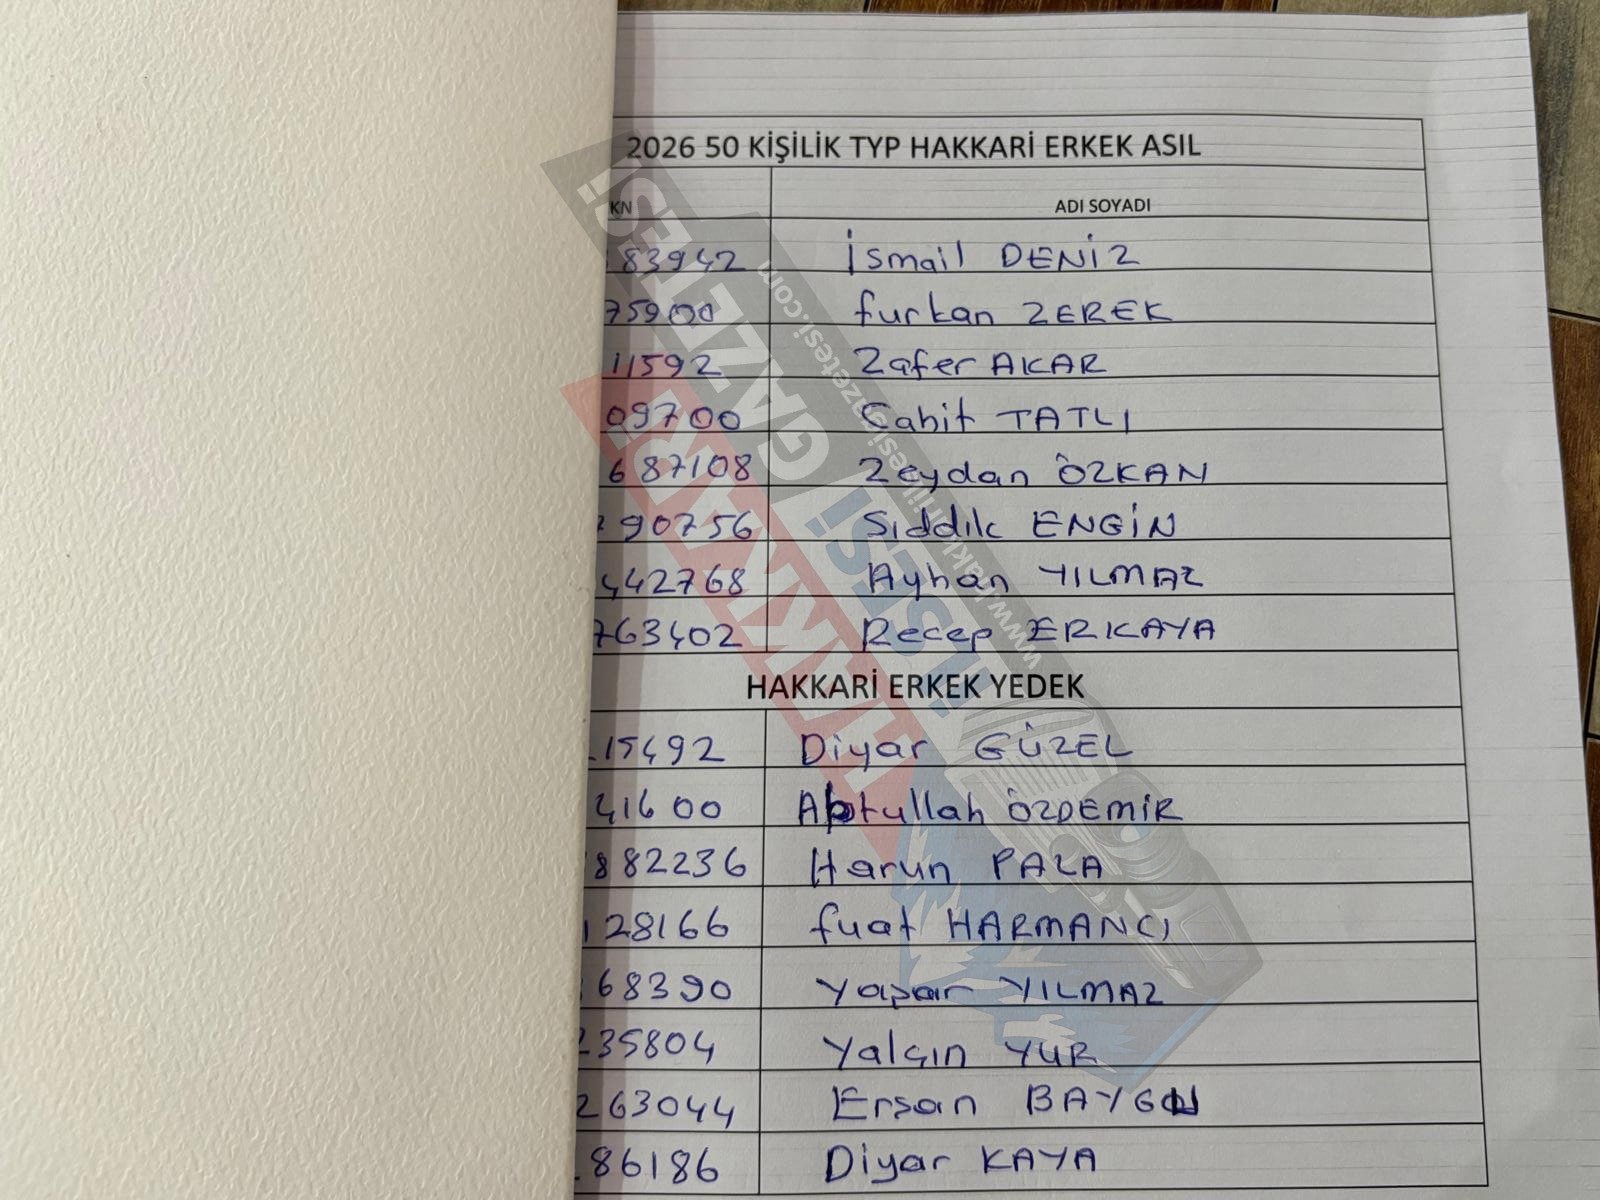 2026 50 KİŞİLİK TYP HAKKARİ ERKEK ASIL
KN ADI SOYADI
83942 İsmail DENİZ
75900 furkan ZEREK
11592 Zafer AKAR
09700 Cahit TATLI
687108 Zeydan ÖZKAN
90756 Sıddık ENGİN
442768 Ayhan YILMAZ
763402 Recep ERKAYA
HAKKARİ ERKEK YEDEK
15492 Diyar GÜZEL
41600 Abtullah ÖZDEMİR
882236 Harun PALA
128166 fuat HARMANCI
68390 Yaşar YILMAZ
235804 Yalçın YUR
263044 Ersan
86186 Diyar KAYA
HAKKARİ
HALKIN SESİ GAZETESİ!